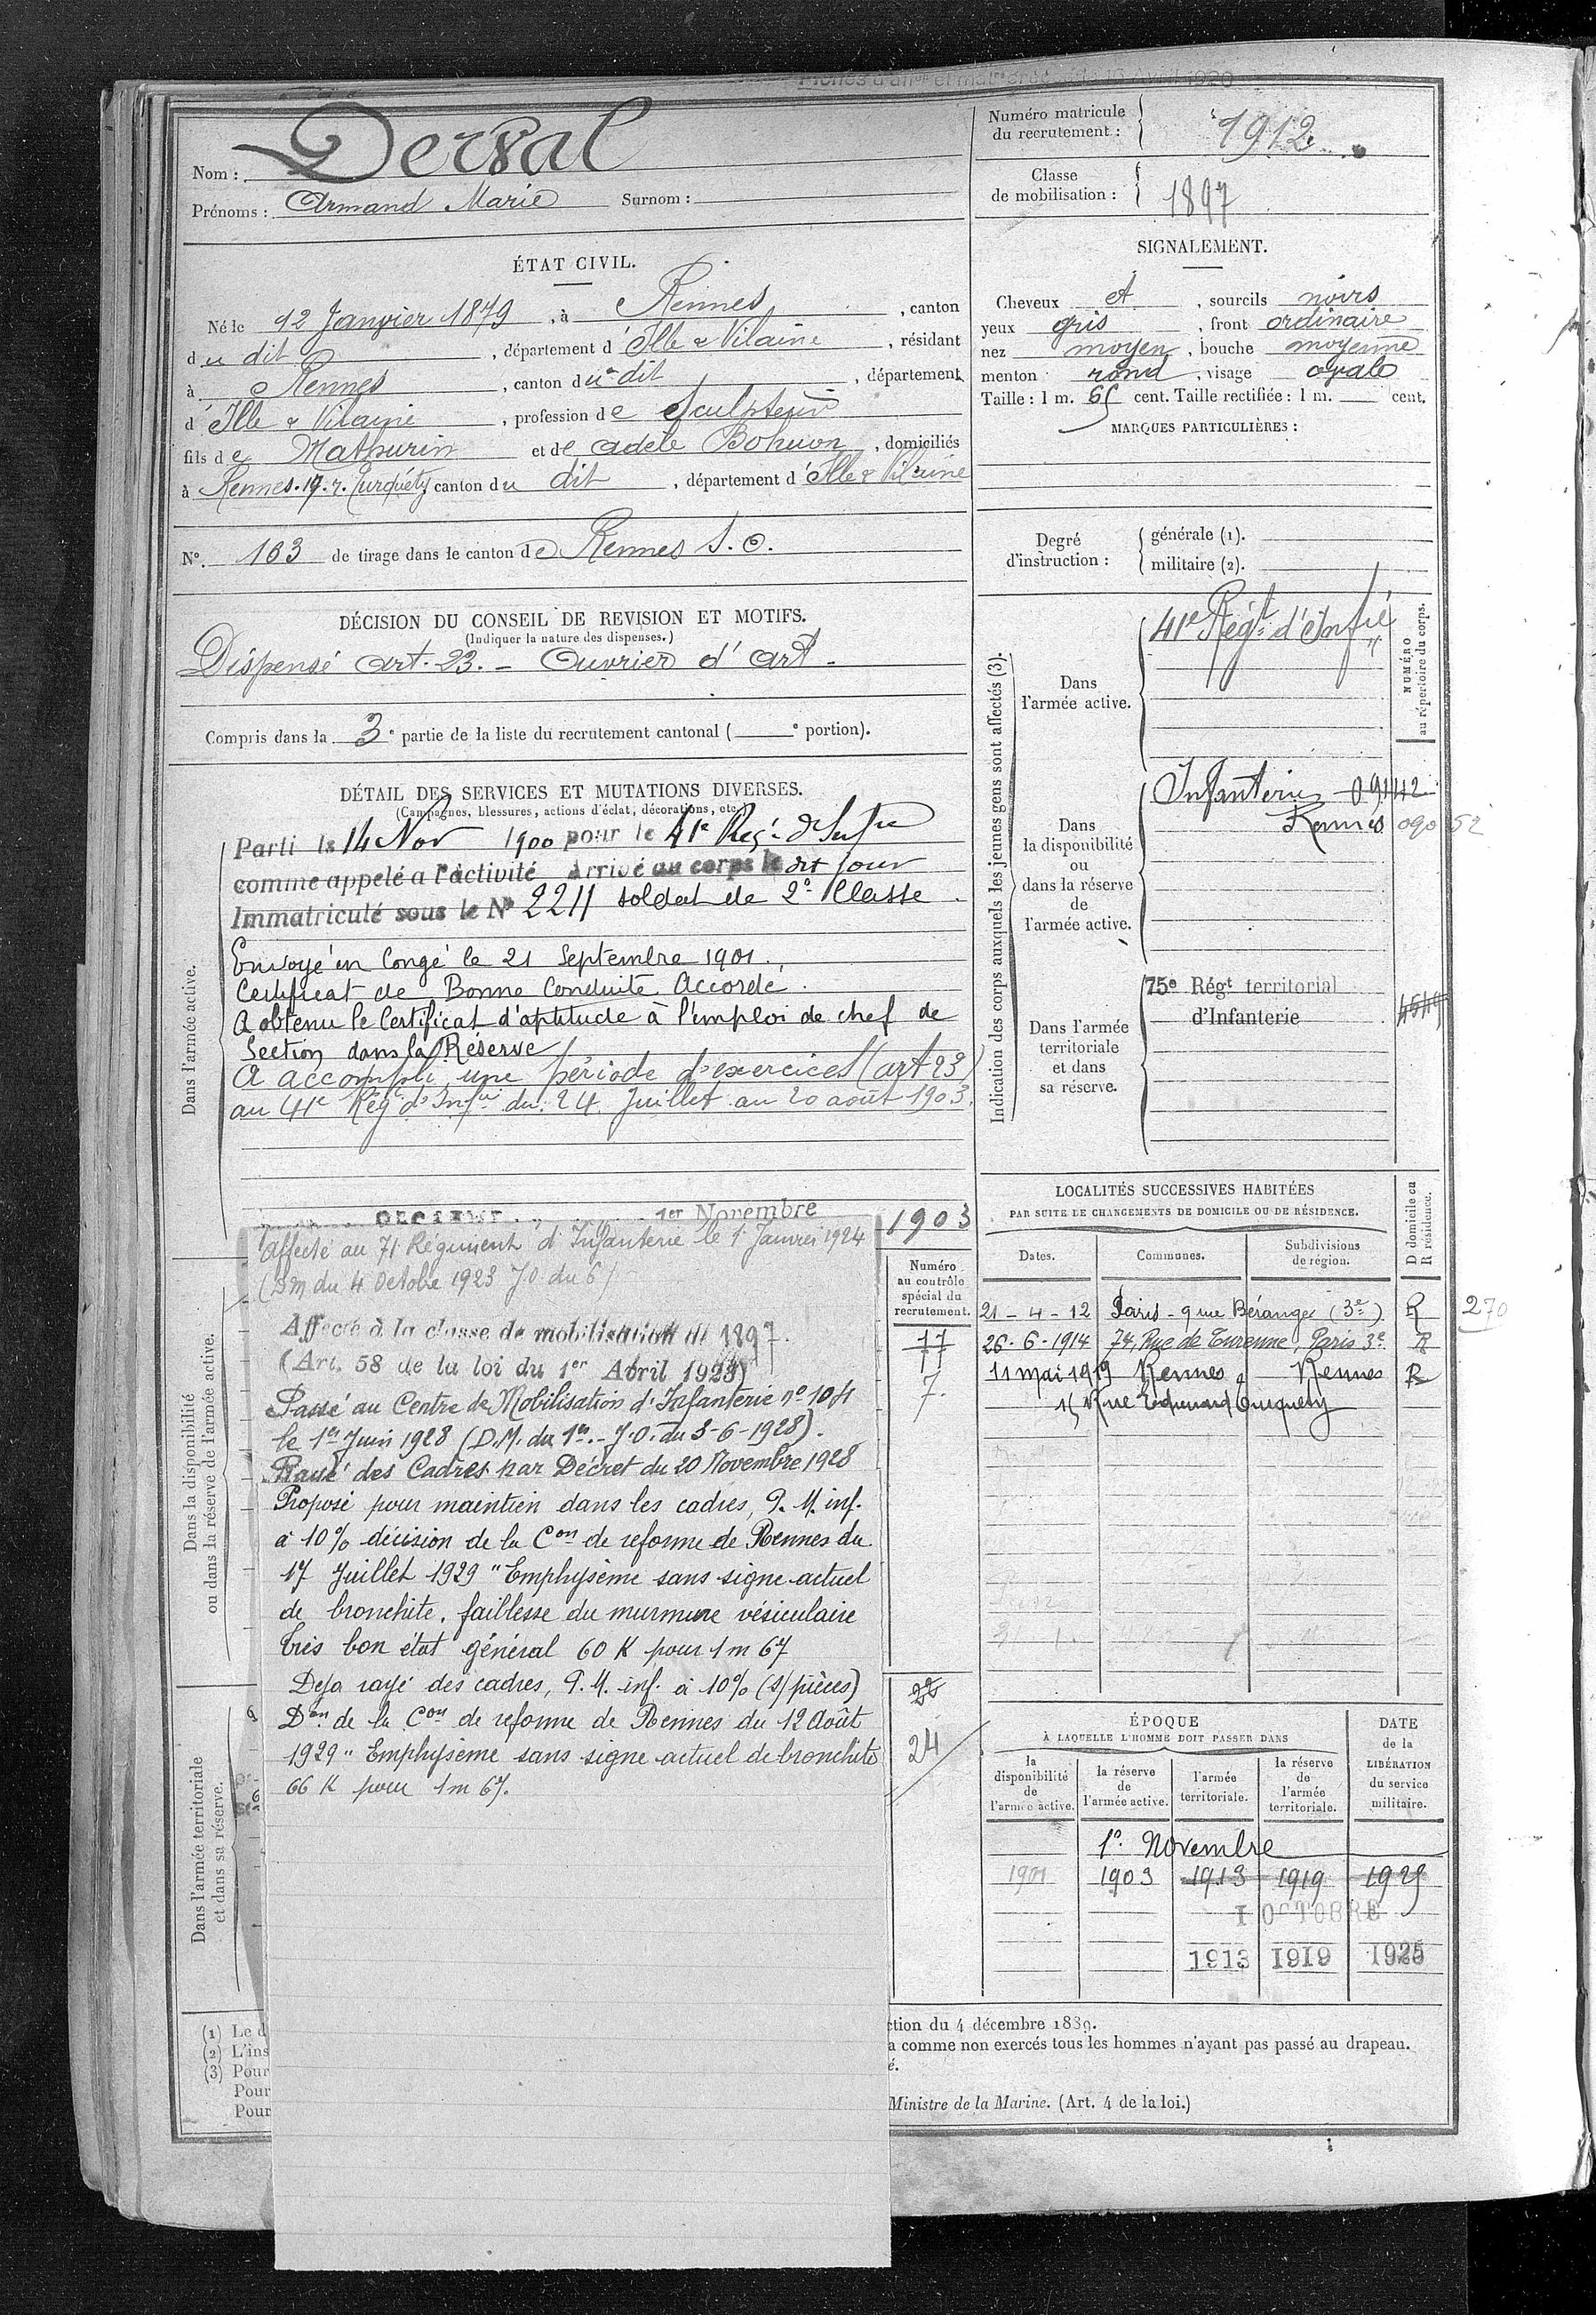 Derval
Nom :
Prénoms : Armand Marie Surnom :
Numéro matricule
du recrutement : 1912
Classe
de mobilisation : 1897
ÉTAT CIVIL.
Né le 12 Janvier 1879, à Rennes, canton
du dit, département d'Ille & Vilaine, résidant
à Rennes, canton du dit, département
d'Ille & Vilaine, profession de Sculpteur
fils de Mathurin et de Adèle Bohuon, domiciliés
à Rennes. 19. r. Turquéty, canton du dit, département d'Ille & Vilaine
N° 163 de tirage dans le canton de Rennes S. O.
DÉCISION DU CONSEIL DE REVISION ET MOTIFS.
(Indiquer la nature des dispenses.)
Dispensé art. 23. - Ouvrier d'art.
Compris dans la 3e partie de la liste du recrutement cantonal ( e portion).
DÉTAIL DES SERVICES ET MUTATIONS DIVERSES.
(Campagnes, blessures, actions d'éclat, décorations, etc.)
Dans l'armée active.
Parti le 14 Nov 1900 pour le 41e Reg. d'Infie
comme appelé a l'activité Arrivé au corps le dit jour
Immatriculé sous le N° 2211 soldat de 2e Classe.
Envoyé en Congé le 21 Septembre 1901.
Certificat de Bonne Conduite Accordé.
A obtenu le Certificat d'aptitude à l'emploi de chef de
Section dans la Réserve
A accompli une période d'exercices (art 23)
au 41e Rég. d'Infie du 24 Juillet au 20 août 1903.
1er Novembre 1903
Dans la disponibilité
ou dans la réserve de l'armée active.
Affecté au 71 Régiment d'Infanterie le 1 Janvier 1924
(DM du 4 Octobre 1923 J.O. du 6)
Affecté à la classe de mobilisation de 1897.
(Art. 58 de la loi du 1er Avril 1923)
Passé au Centre de Mobilisation d'Infanterie n° 104
le 1er Juin 1928 (D.M. du 1er. - J.O. du 3-6-1928).
Rayé des Cadres par Décret du 20 Novembre 1928
Proposé pour maintien dans les cadres, P. M. inf.
à 10% décision de la Con de reforme de Rennes du
17 Juillet 1929 "Emphysème sans signe actuel
de bronchite, faiblesse du murmure vésiculaire
Très bon état général 60 K pour 1 m 67
Deja rayé des cadres, P. M. inf. à 10% (s/pièces)
Don de la Con de reforme de Rennes du 12 Août
1929 " Emphysème sans signe actuel de bronchite
66 K pour 1 m 67.
Numéro
au contrôle
spécial du
recrutement.
17
7.
22
24
Dans l'armée territoriale
et dans sa réserve.
SIGNALEMENT.
Cheveux et, sourcils noirs
yeux gris, front ordinaire
nez moyen, bouche moyenne
menton rond, visage ovale
Taille : 1 m. 65 cent. Taille rectifiée : 1 m. cent.
MARQUES PARTICULIÈRES :
Degré
d'instruction :
générale (1).
militaire (2).
Indication des corps auxquels les jeunes gens sont affectés (3).
NUMÉRO
au répertoire du corps.
Dans
l'armée active.
41e Régt d'Infie
Dans
la disponibilité
ou
dans la réserve
de
l'armée active.
Infanterie
Rennes 090 52
Dans l'armée
territoriale
et dans
sa réserve.
75e Régt territorial
d'Infanterie
LOCALITÉS SUCCESSIVES HABITÉES
PAR SUITE DE CHANGEMENTS DE DOMICILE OU DE RÉSIDENCE.
D domicile ou
R résidence.
Dates. Communes. Subdivisions
de région.
21-4-12 Paris - 9 rue Béranger (3e) R 270
26-6-1914 74, Rue de Turenne, Paris 3e R
11 mai 1919 Rennes Rennes R
15 Rue Edouard Turquety
ÉPOQUE
À LAQUELLE L'HOMME DOIT PASSER DANS
DATE
de la
LIBÉRATION
du service
militaire.
la
disponibilité
de
l'armée active.
la réserve
de
l'armée active.
l'armée
territoriale.
la réserve
de
l'armée
territoriale.
1er Novembre
1901 1903 1913 1919 1925
1 OCTOBRE
1913 1919 1925
(1) Le d
(2) L'ins
(3) Pour
Pour
Pour
ction du 4 décembre 1889.
a comme non exercés tous les hommes n'ayant pas passé au drapeau.
é.
Ministre de la Marine. (Art. 4 de la loi.)